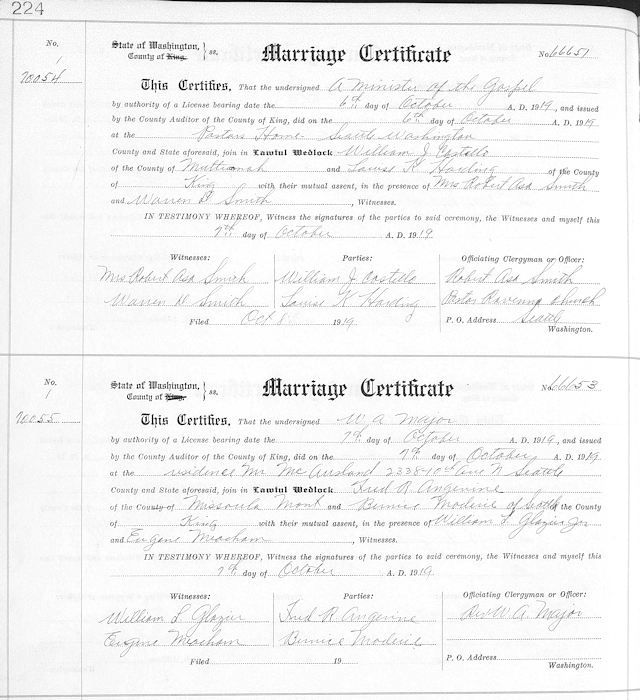 224
No. 1
70054
State of Washington, County of King. } ss.
Marriage Certificate
No. 66651
This Certifies, That the undersigned A Minister of the Gospel
by authority of a License bearing date the 6th day of October A. D. 1919, and issued
by the County Auditor of the County of King, did on the 6th day of October A. D. 1919
at the Pastors Home Seattle Washington
County and State aforesaid, join in Lawful Wedlock William J. Costello
of the County of Multnomah and Louise K Harding of the County
of King with their mutual assent, in the presence of Mrs Robert Asa Smith
and Warren D. Smith, Witnesses.
IN TESTIMONY WHEREOF, Witness the signatures of the parties to said ceremony, the Witnesses and myself this
7th day of October A. D. 1919
Witnesses: Parties: Officiating Clergyman or Officer:
Mrs Robert Asa Smith William J Costello Robert Asa Smith
Warren D Smith Louise K Harding Pastor Ravenna Church
Filed Oct 8 1919 P. O. Address Seattle
Washington.
No. 1
70055
State of Washington, County of King. } ss.
Marriage Certificate
No. 66653
This Certifies, That the undersigned W. A. Major
by authority of a License bearing date the 7th day of October A. D. 1919, and issued
by the County Auditor of the County of King, did on the 7th day of October A. D. 1919
at the residence Mr. 2338 10th Ave N Seattle
County and State aforesaid, join in Lawful Wedlock Fred R Angevine
of the County of Missoula Mont and Bernice of Seattle the County
of King with their mutual assent, in the presence of William L Glazier Jr
and Eugene Meacham, Witnesses.
IN TESTIMONY WHEREOF, Witness the signatures of the parties to said ceremony, the Witnesses and myself this
7th day of October A. D. 1919
Witnesses: Parties: Officiating Clergyman or Officer:
William L Glazier Fred R Angevine Rev W. A. Major
Eugene Meacham Bernice
Filed 19 P. O. Address
Washington.